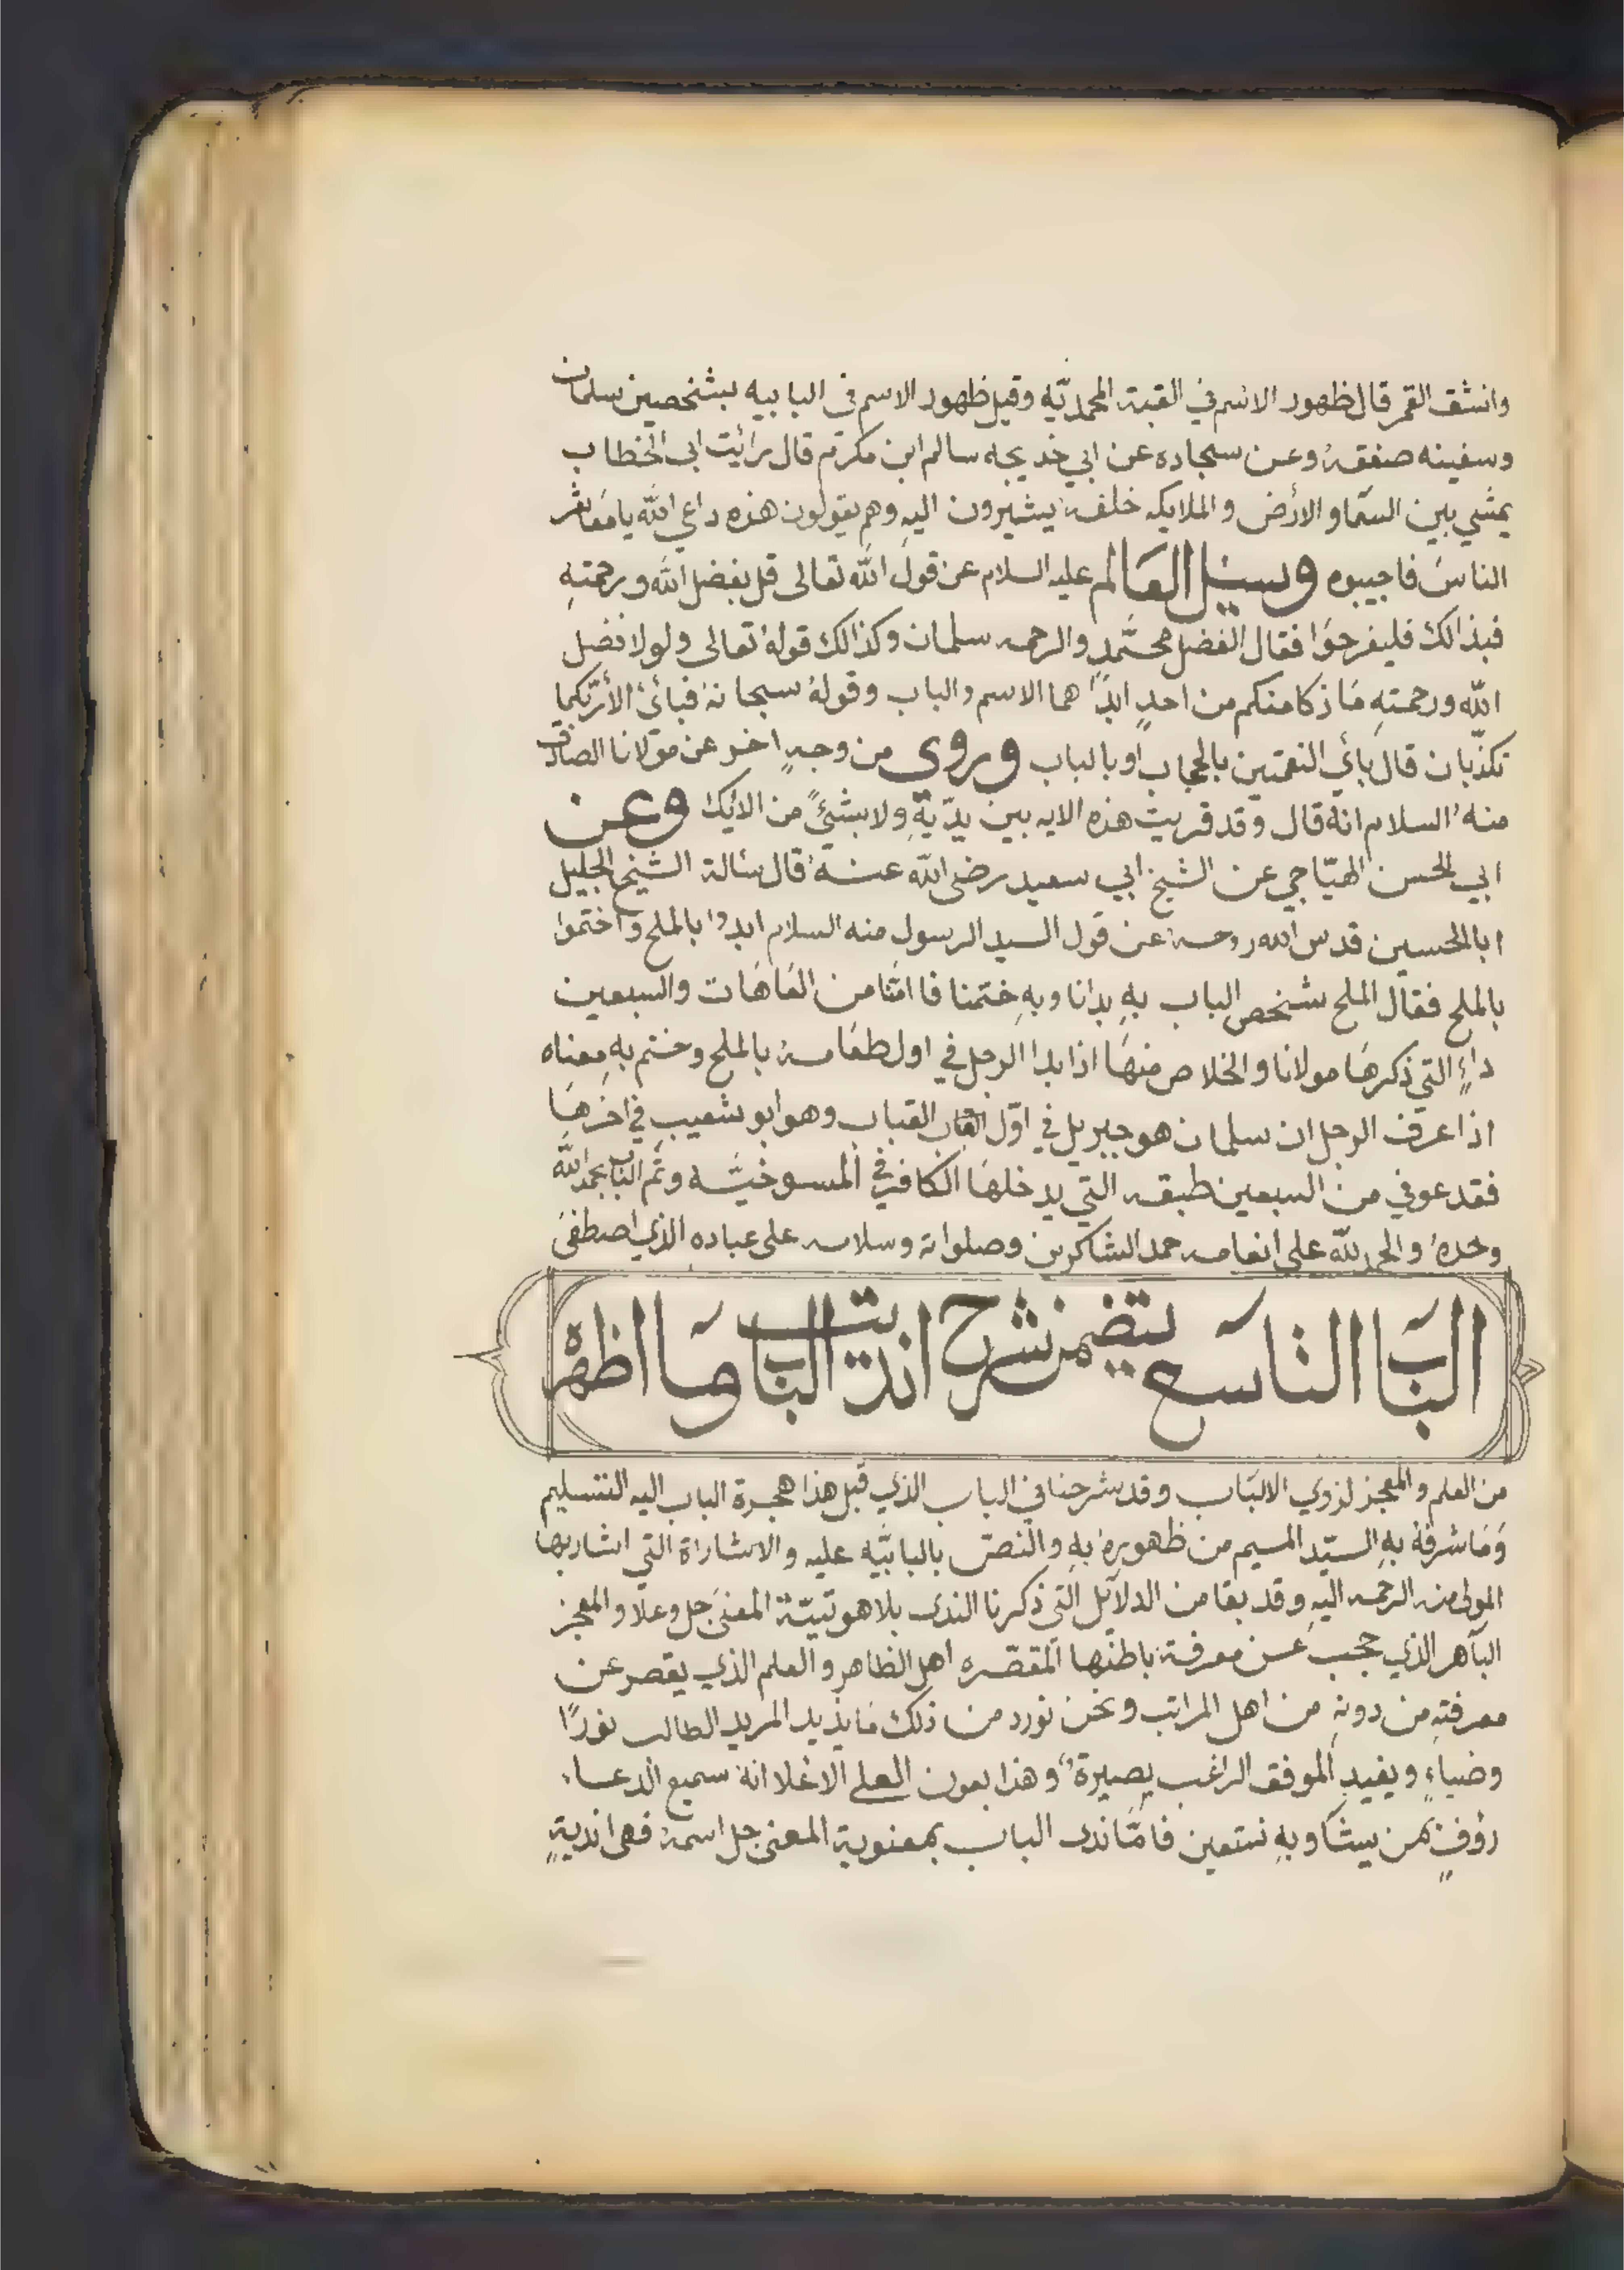 وانشق القمر قال ظهور الاسم في القبة المحمديّه وقيل ظهور الاسم في البابيه بشخصين سلمان
وسفينه صفقة وعن سجاده عن ابي خديجه سالم ابن مكرم قال رائيت ابي الخطاب
يمشي بين السمَا والارض والملايكه خلفهُ يشيرون اليه وهم يقولون هذه داعي الله يا معَاشر
الناسَ فاجيبوه وسيل العَالم عليه السلام عن قول الله تعالى قل بفضل الله ورحمتهِ
فبذالك فليفرحوَا فقال الفضل محمَّد والرحمه سلمان وكذالك قولهُ تعالى ولولا فضل
الله ورحمتهِ مَا زكا منكم من احدٍ ابدًا هما الاسم والباب وقولهُ سبحانهُ فبائ الأرّبكما
تكذّبان قال بايّ النعمتين بالحجاب او بالباب وروي من وجهٍ اخر عن مولانا الصادق
منهُ السلام انهُ قال وقد قريت هذه الايه بين يدّيهِ ولا بشئٍ من الايك وعن
ابي الحسن الهيّاجي عن الشيخ ابي سعيد رضى الله عنهُ قال سالة الشيخ الجليل
ابا الحسين قدس الله روحهُ عن قول السيد الرسول منه السلام ابدوا بالملح واختموا
بالملح فقال الملح شخص الباب بهِ بدانا وبهِ ختمنا فا امَّنا من العَاهَات والسبعين
داءٍ التي ذكرهَا مولانا والخلاص منهَا اذا بدا الرجل في اول طعَامهُ بالملح وختم بهِ معناه
اذا عرف الرجل ان سلمان هو جبريل في اوّل القباب وهو ابو شعيب في اخرهَا
فقد عوفي من السبعين طبقه التي يدخلهَا الكافر في المسوخيَّه وتَم الباب بحمد الله
وحدهُ والحمد لله على انعامه حمد الشاكرين وصلواته وسلامه على عباده الذي اصطفىَ
البَاب التاسَع يتضمن شرح اندية الباب ومَا اظهرهُ
من العلم والمعجز لزوي الالبَاب وقد شرحنا في الباب الذي قبل هذا هجرة الباب اليه التسليم
وَمَا شرفهُ بهِ السيّد الميم من ظهورهِ بهِ والنصّ بالبابيَّه عليه والاشاراة التي اشار بها
المولى منه الرحمه اليهِ وقد بقا من الدلآيل التي ذكرنا الندى بلاهوتيّة المعنىَ جل وعلا والمعجز
البآهر الذي حجب عن معرفة باطنها المقصّره اهل الظاهر والعلم الذي يقصر عن
معرفتهِ من دونهِ من اهل المراتب ونحن نورد من ذلك مَا يذيد المريد الطالب نورًا
وضياءٍ ويفيد الموفق الراغب بصيرةً وهذا بعون العلي الاعلا انهُ سميع الدعاء
رؤفٍ بمن يشَا وبهِ نستعين فامَّا ندى الباب بمعنوية المعنى جل اسمهُ فهى انديةٍ